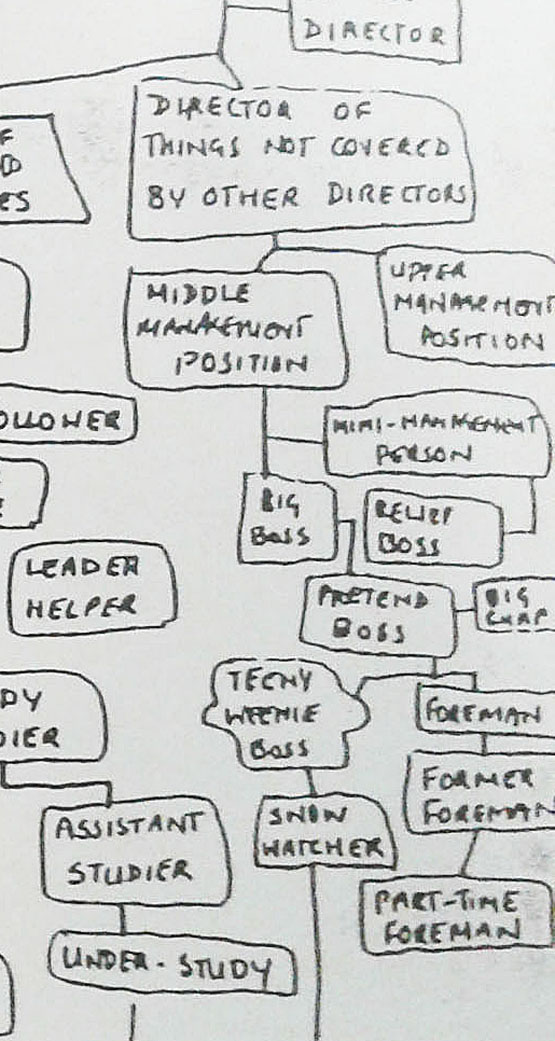 DIRECTOR
DIRECTOR OF
THINGS NOT COVERED
BY OTHER DIRECTORS
ES
UPPER
MANAGEMENT
POSITION
MIDDLE
MANAGEMENT
POSITION
OLLOWER
MINI-MANAGEMENT
PERSON
BIG
BOSS
RELIEF
BOSS
LEADER
HELPER
PRETEND
BOSS
BIG
CHAP
TEENY
WEENIE
BOSS
DY
DIER
FOREMAN
FORMER
FOREMAN
ASSISTANT
STUDIER
SNOW
WATCHER
PART-TIME
FOREMAN
UNDER-STUDY